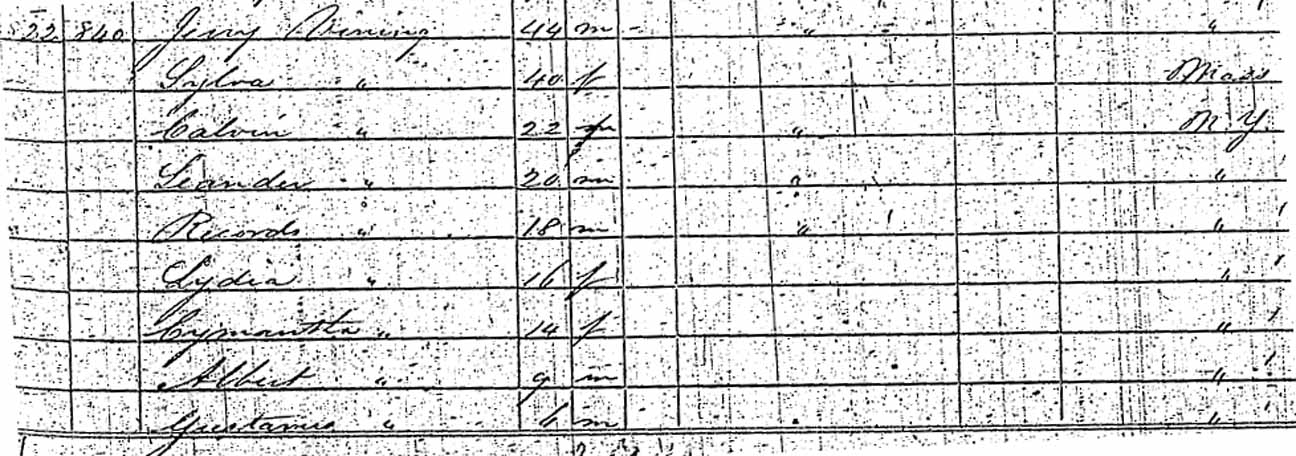 822 840 Jerry Vining 44 m " "
Sylva " 40 f Mass
Calvin " 22 m " N.Y.
Leander " 20 m " "
Records " 18 m " "
Lydia " 16 f "
Cymantha " 14 f "
Albert " 9 m "
Gustavus " 6 m "